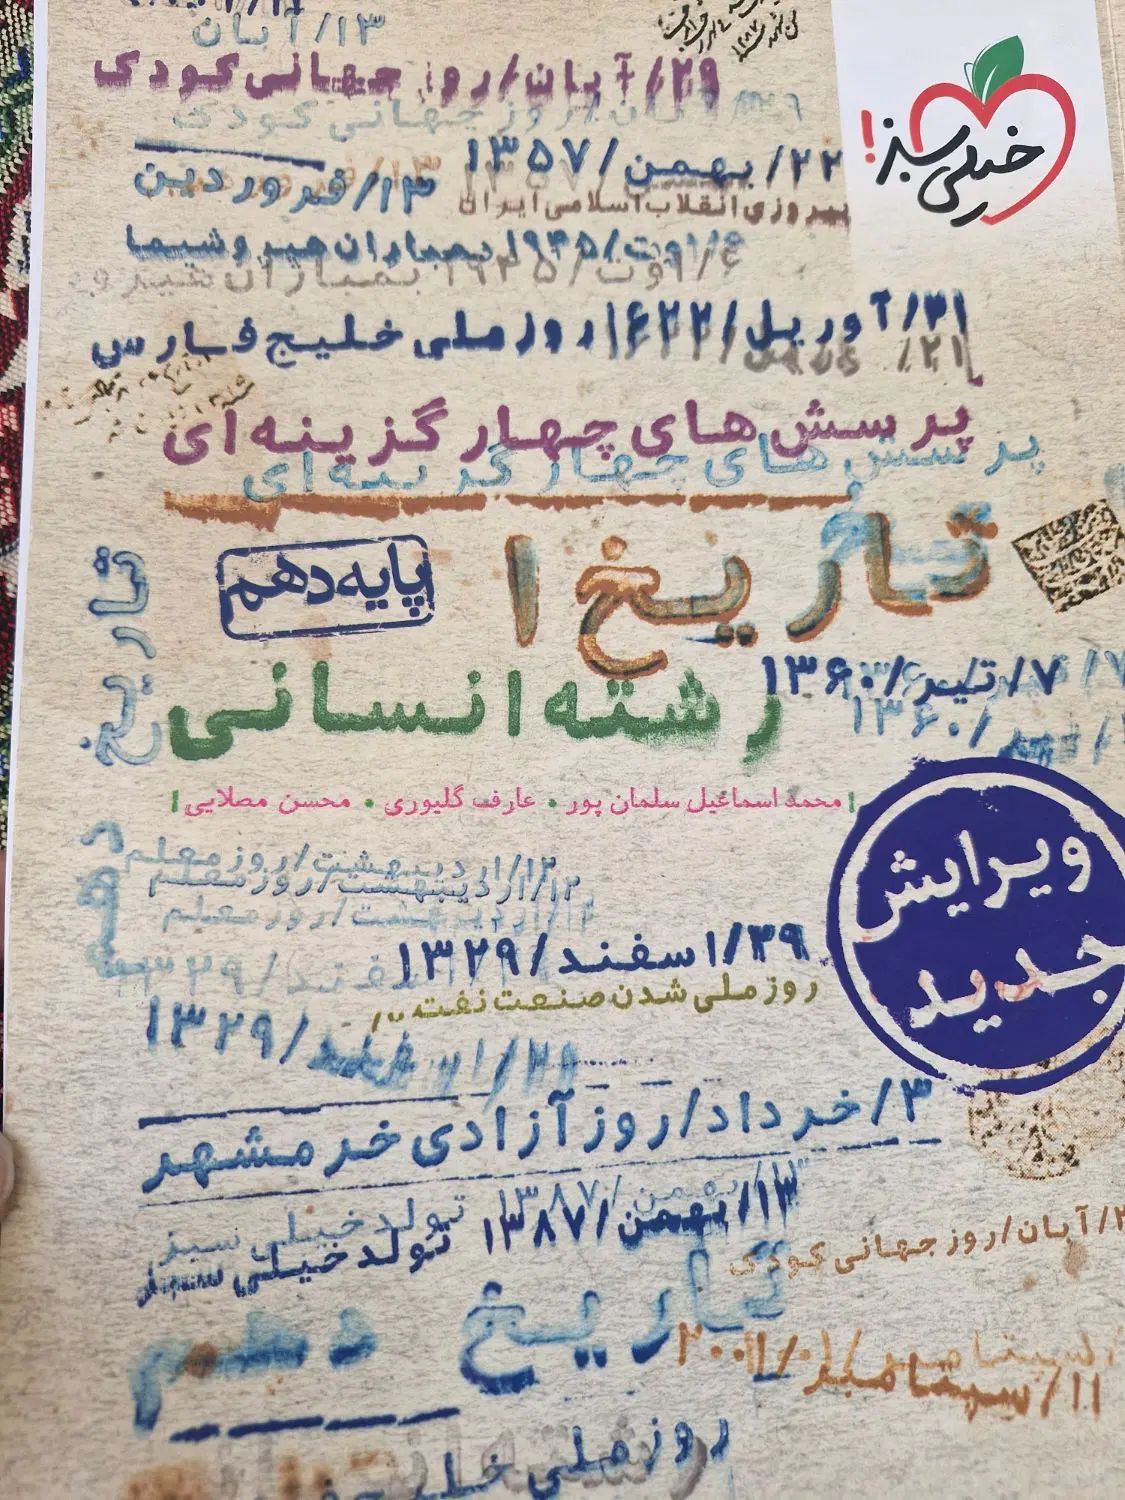 ۱۳/آبان
۲۹/آبان/روز جهانی کودک
خیلی سبز!
۲۲/بهمن/۱۳۵۷
۱۳/فروردین
پیروزی انقلاب اسلامی ایران
۶/اوت/۱۹۴۵ بمباران هیروشیما
۲۱/آوریل/۱۶۲۲ روز ملی خلیج فارس
پرسش های چهار گزینه ای
پرسش های چهار گزینه ای
تاریخ ۱
پایه دهم
تاریخ
۷/تیر/۱۳۶۰
رشته انسانی
محمد اسماعیل سلمان پور • عارف گلیوری • محسن مصلایی
۱۲/اردیبهشت/روز معلم
۱۲/اردیبهشت/روز معلم
اردیبهشت/روز معلم
ویرایش
جدید
۲۹/اسفند/۱۳۲۹
روز ملی شدن صنعت نفت
۱۳۲۹
۳/خرداد/روز آزادی خرمشهر
۱۳/بهمن/۱۳۸۷ تولد خیلی سبز
تولد خیلی سبز
آبان/روز جهانی کودک
تاریخ دهم
۱۱/سپتامبر/۲۰۰۱
روز ملی